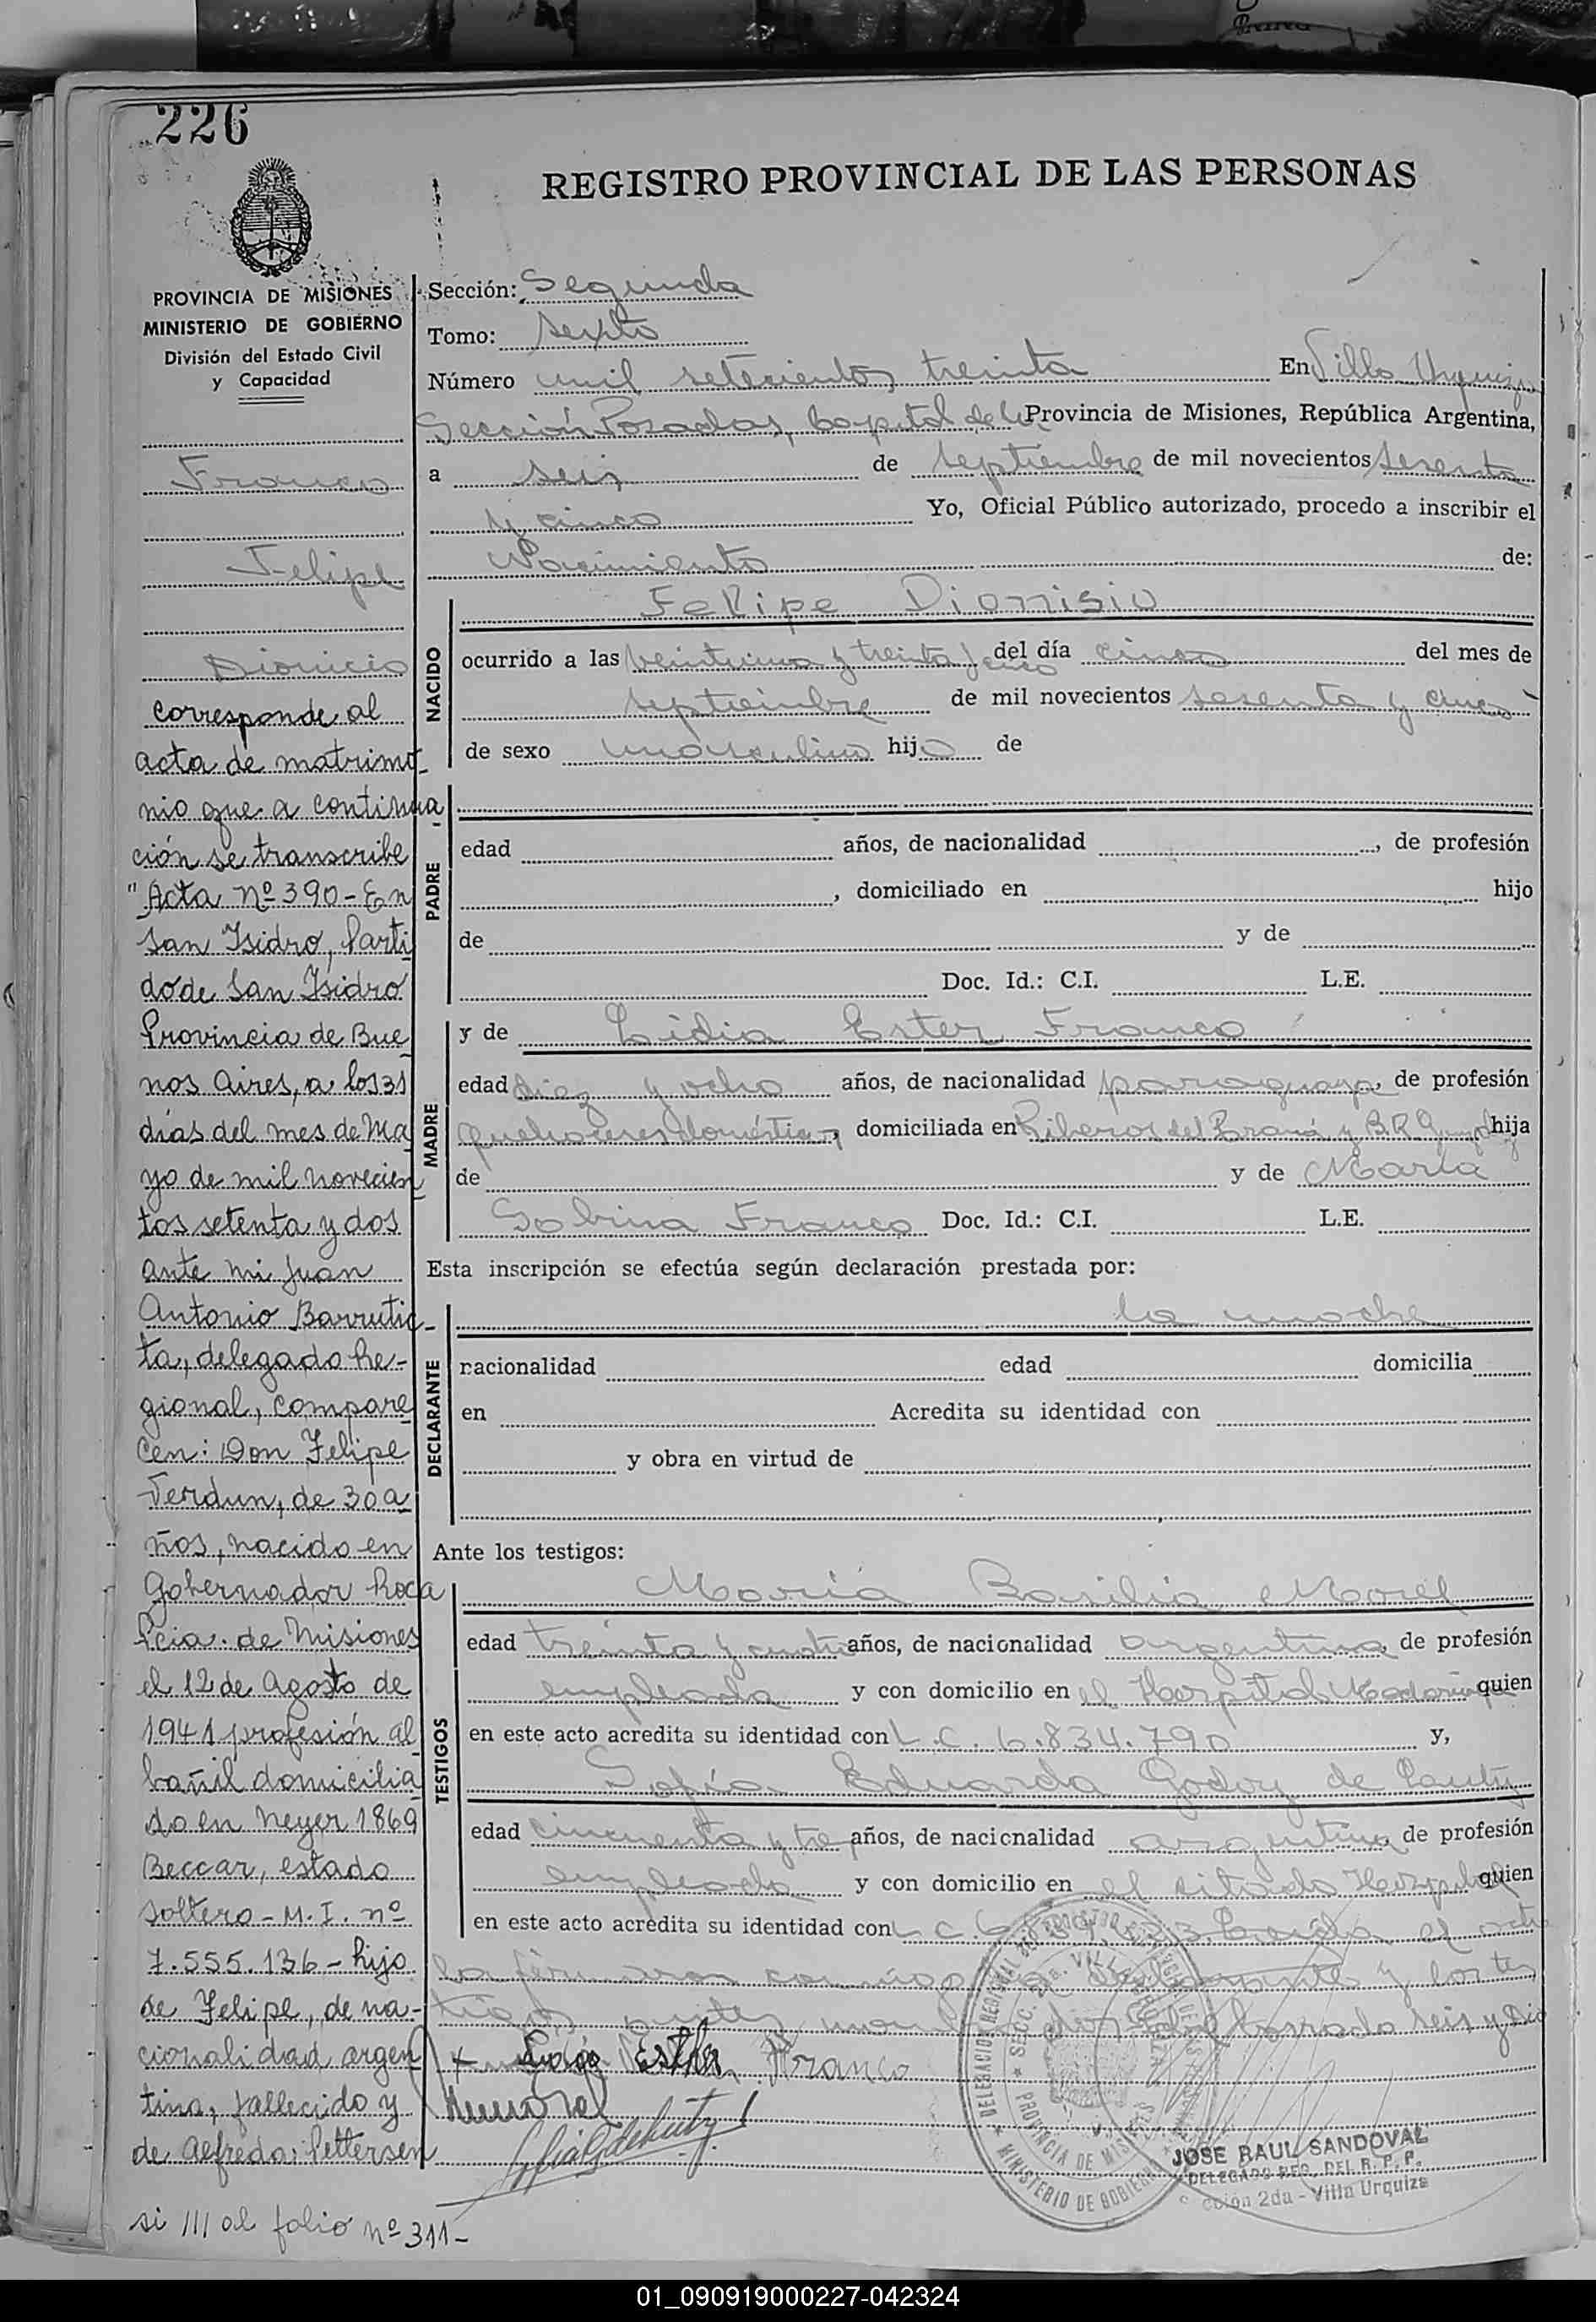 226
REGISTRO PROVINCIAL DE LAS PERSONAS
PROVINCIA DE MISIONES
MINISTERIO DE GOBIERNO
División del Estado Civil
y Capacidad
Franco
Felipe
Dionicio
corresponde al
acta de matrimo-
nio que a continua-
ción se transcribe
"Acta Nº 390 - En
San Isidro, Parti
do de San Isidro
Provincia de Bue-
nos Aires, a los 31
días del mes de Ma
yo de mil novecien-
tos setenta y dos
ante mi Juan
Antonio Barrutie-
ta, delegado Re-
gional, compare-
cen: Don Felipe
Verdun, de 30 a-
ños, nacido en
Gobernador Roca
Pcia. de Misiones
el 12 de Agosto de
1941 profesión al-
bañil domicilia-
do en Neyer 1869
Beccar, estado
soltero - M.I. nº
7.555.136 - hijo
de Felipe, de na-
cionalidad argen-
tina, fallecido y
de Alfreda Pettersen
si /// al folio nº 311-
Sección: Segunda
Tomo: sexto
Número mil setecientos treinta En Villa Urquiza
Sección Posadas, Capital de la Provincia de Misiones, República Argentina,
a seis de septiembre de mil novecientos sesenta
y cinco Yo, Oficial Público autorizado, procedo a inscribir el
Nacimiento de:
NACIDO
Felipe Dionisio
ocurrido a las veintiuna y treinta y cinco del día cinco del mes de
septiembre de mil novecientos sesenta y cinco
de sexo masculino hijo de
PADRE
edad años, de nacionalidad , de profesión
, domiciliado en hijo
de y de
Doc. Id.: C.I. L.E.
MADRE
y de Lidia Ester Franco
edad diez y ocho años, de nacionalidad paraguaya, de profesión
quehaceres domésticos, domiciliada en Riberas del Paraná y B.R. hija
de y de María
Sabina Franco Doc. Id.: C.I. L.E.
Esta inscripción se efectúa según declaración prestada por:
DECLARANTE
la madre
nacionalidad edad domicilia
en Acredita su identidad con
y obra en virtud de
Ante los testigos:
TESTIGOS
María Basilia Morel
edad treinta y cuatro años, de nacionalidad argentina, de profesión
empleada y con domicilio en el Hospital Madariaga quien
en este acto acredita su identidad con L.C. 6.834.790 y,
Sofía Eduarda Godoy de
edad cincuenta y tres años, de nacionalidad argentina, de profesión
empleada y con domicilio en el citado Hospital quien
en este acto acredita su identidad con L.C. Leída el acta
la firmaron conmigo la declarante y los tes
tigos borrado seis y Dio
Lidia Ester Franco
DELEGACION REGIONAL DEL REGISTRO PROVINCIAL DE LAS PERSONAS
SECC. 2da. VILLA URQUIZA
PROVINCIA DE MISIONES
MINISTERIO DE GOBIERNO
JOSE RAUL SANDOVAL
DELEGADO REG. DEL R. P. P.
Sección 2da - Villa Urquiza
01_090919000227-042324